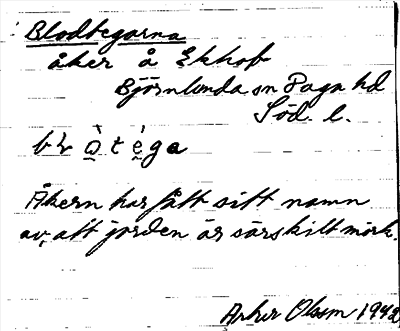 Blodtegarna
åker å Ekhof
Björnlunda sn Daga hd
Söd. l.
Åkern har fått sitt namn
av, att jorden är särskilt mörk.
Olsson 1942